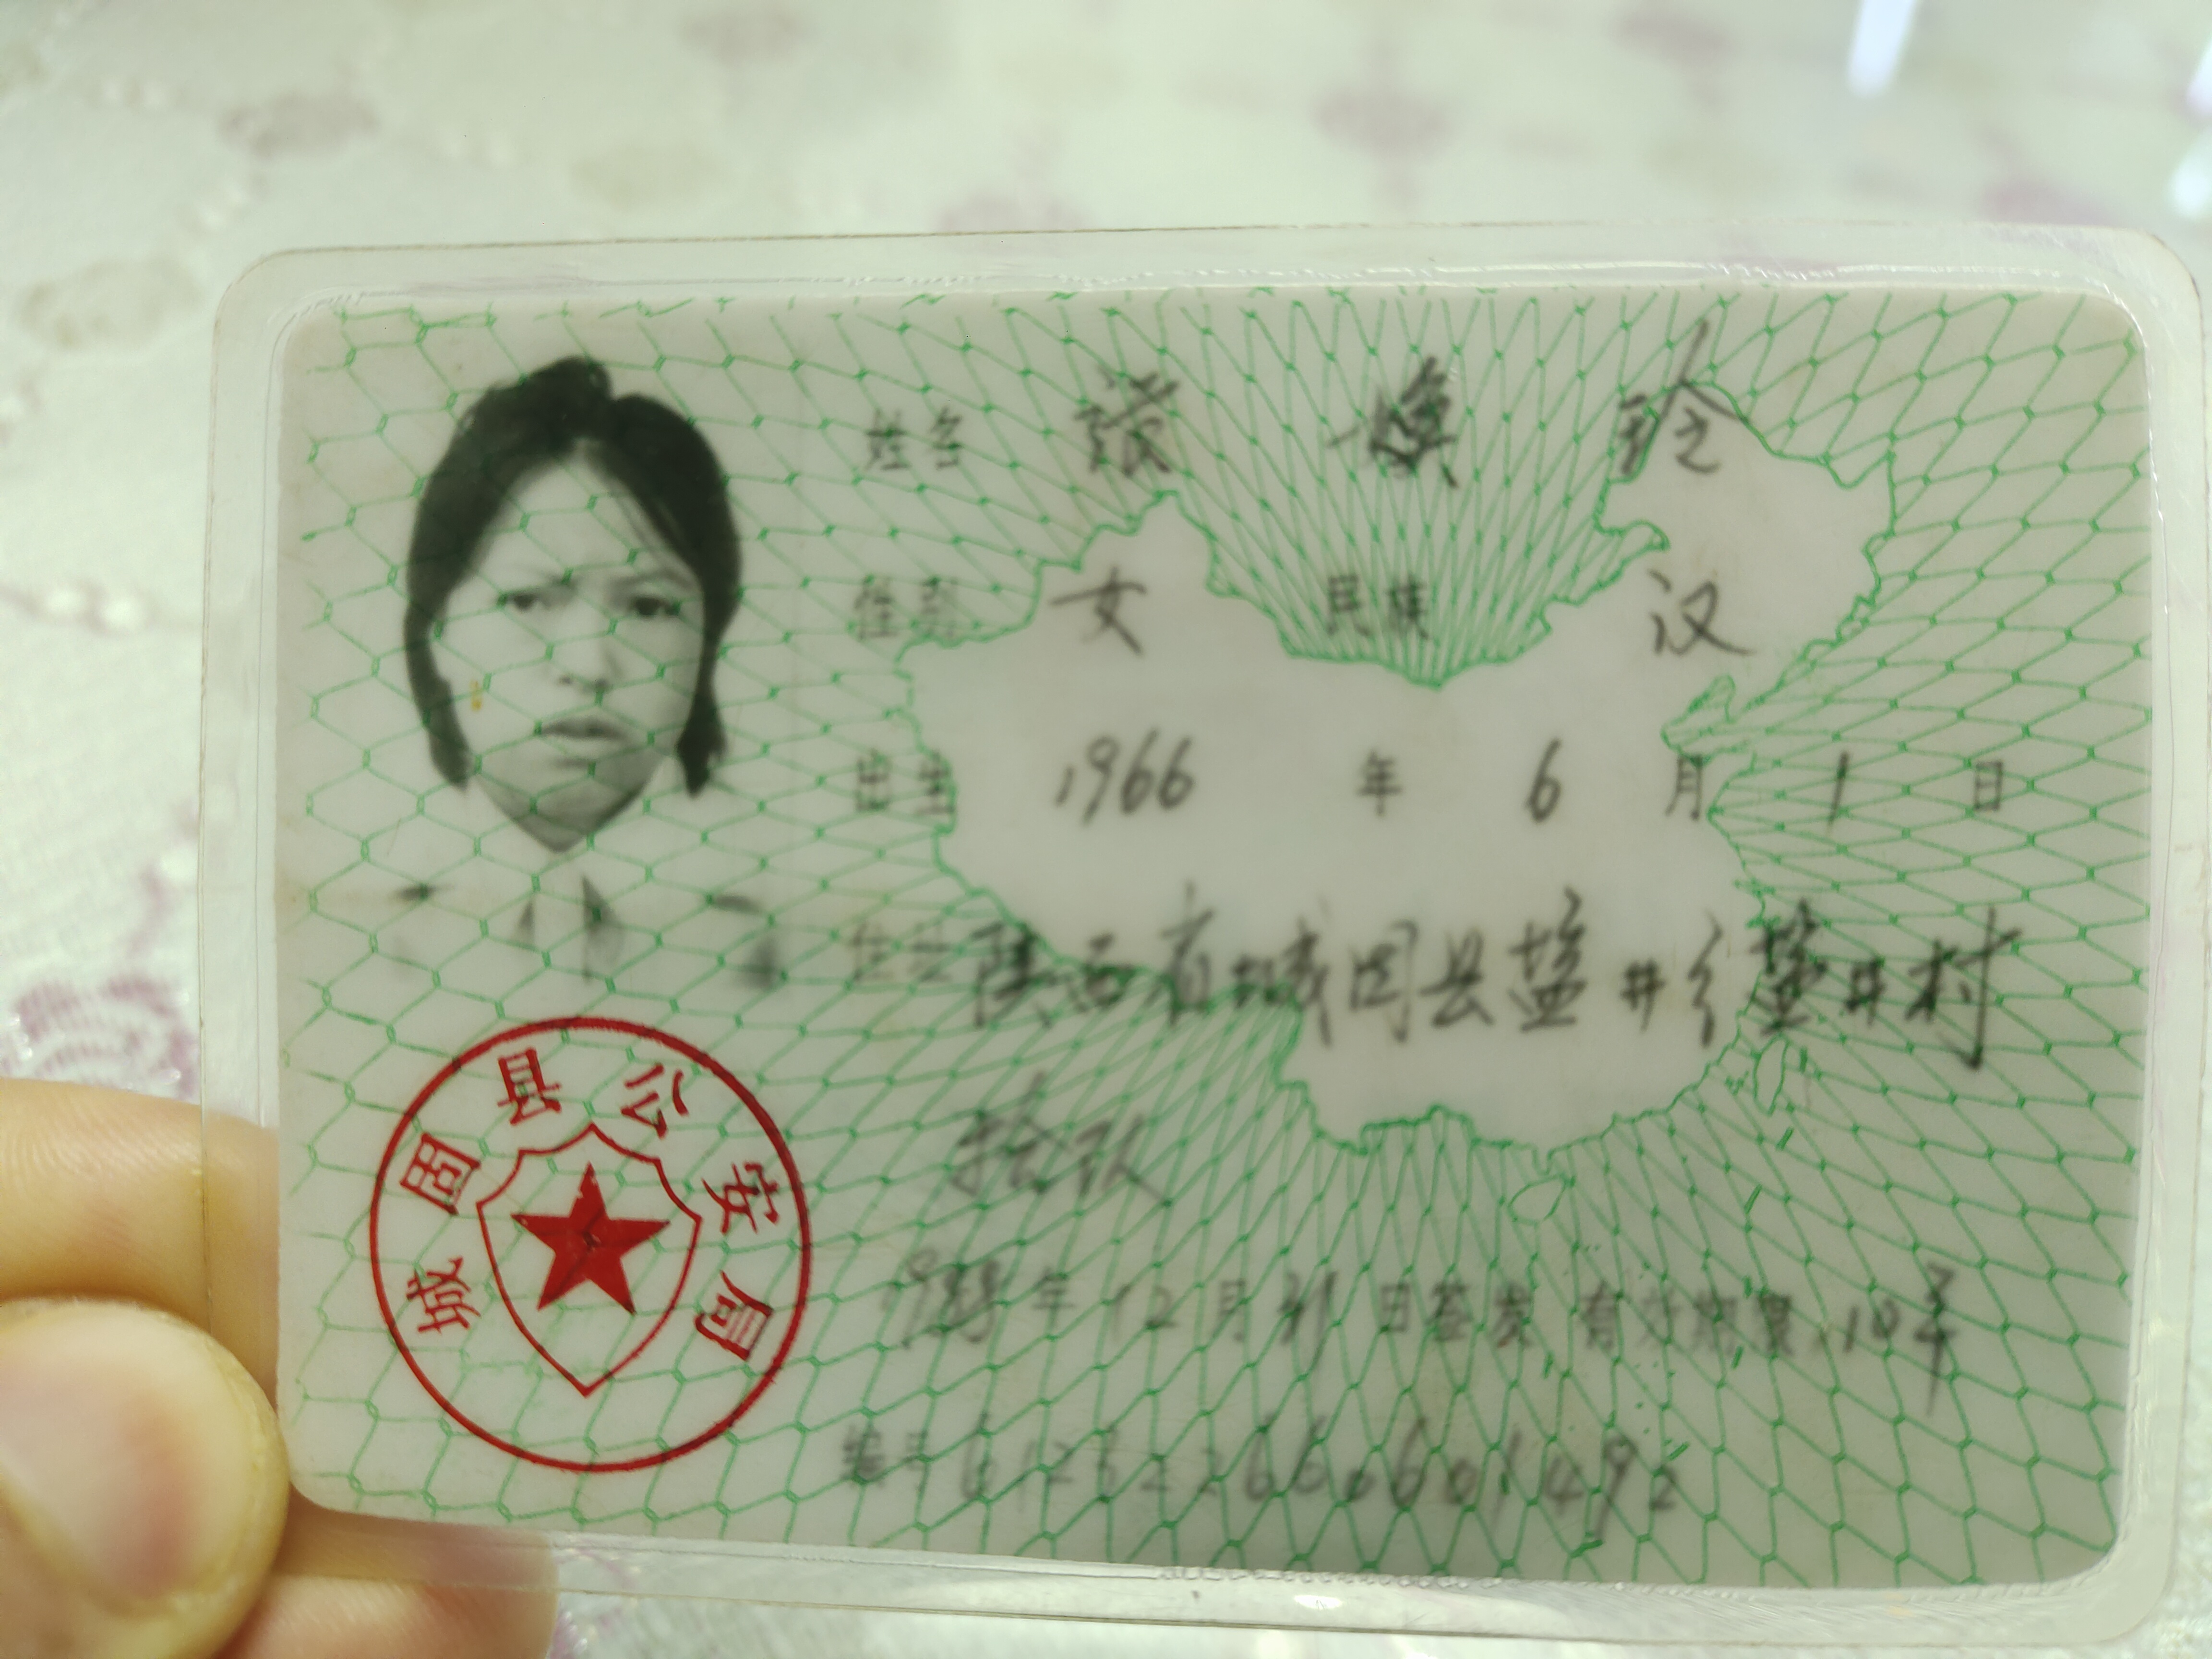 姓名 张焕玲
性别 女 民族 汉
出生 1966 年 6 月 1 日
住址 陕西省城固县盐井乡盐井村
年 12 月 31 日签发 有效期限 10年
编号
城固县公安局